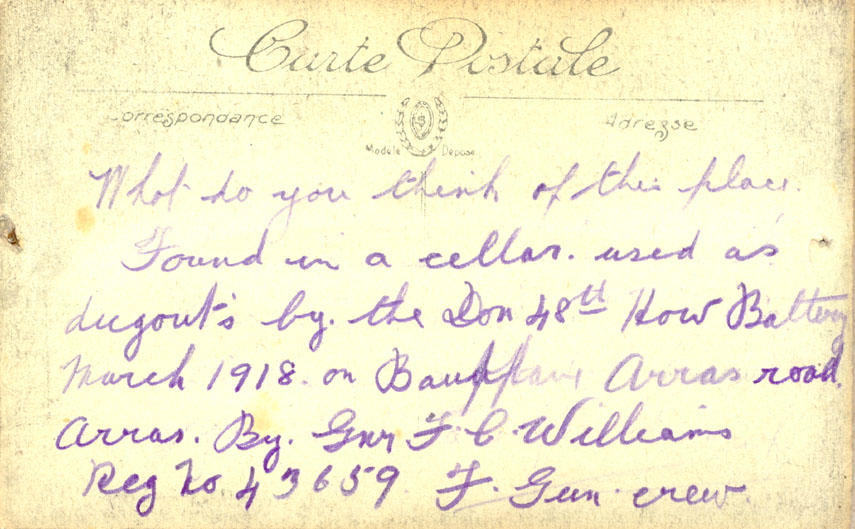 Carte Postale
Correspondance
Adresse
Modele Depose
What do you think of this place.
Found in a cellar. used as
dugout's by. the Don 48th How Battery
March 1918. on Arras road.
Arras. By. Gnr F. C. Williams
Reg No. 43659. F. Gun crew.